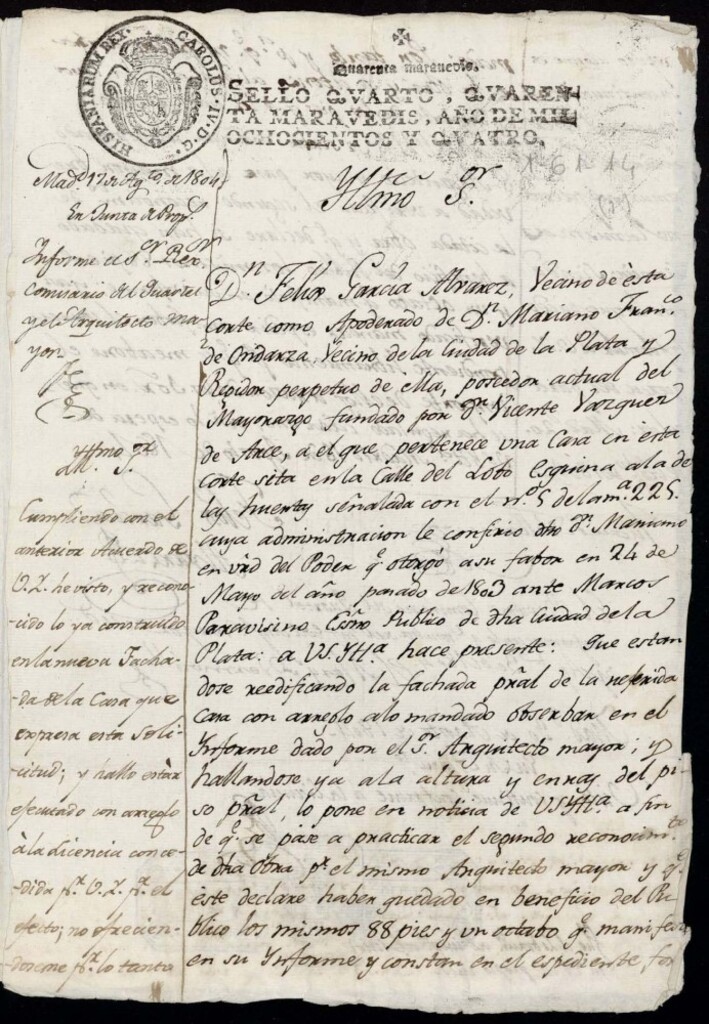 HISPANIARUM REX. CAROLUS. IV. D. G.
Quarenta maravedis.
SELLO QVARTO, QVAREN-
TA MARAVEDIS, AÑO DE MIL
OCHOCIENTOS Y QVATRO.
Mad.d 17 de Ag.to de 1804.
En Junta de Prop.s
Informe el S.or Rex.r
comisario del Quartel
y el Arquitecto ma-
yor
Yltmo S.or
Cumpliendo con el
anterior Acuerdo de
V.I. he visto, y recono-
-cido lo ya construido
en la nueva Facha-
-da de la Casa que
expresa esta Soli-
-citud; y hallo estàr
executado con arreglo
à la licencia conce-
-dida p.r V.I. p.a el
efecto; no ofrecien-
dome p.r lo tanto
Yltmo S.or
D.n Felix Garcia Alvarez, Vecino de èsta
Corte como Apoderado de D.n Mariano Fran.co
de Ondarza, Vecino de la Ciudad de la Plata y
Regidor perpetuo de ella, posedor actual del
Mayorazgo fundado por d.n Vicente Vazquez
de Arce, a el que pertenece una Casa en esta
corte sita en la Calle del Lobo esquina a la de
las huertas señalada con el n.o 5 de la m.a 225.
cuya administracion le confirio dho d.n Mariano
en vrd del Poder q.e otorgó a su fabor en 24 de
Mayo del año pasado de 1803 ante Marcos
Paravisino Esño Publico de dha Ciudad de la
Plata: a VSYlt.a hace presente: Que estan
dose reedificando la fachada pral de la referida
Casa con arreglo a lo mandado obserbar en el
Ynforme dado por el S.or Arquitecto mayor; y
hallandose ya a la altura y enrray del pi-
so pral, lo pone en noticia de VSYlt.a a fin
de q.e se pase a practicar el segundo reconocim.to
de dha Obra p.r el mismo Arquitecto mayor y q.e
èste declare haber quedado en beneficio del Pu-
blico los mismos 88 pies y un octabo q.e manifestó
en su Ynforme y constan en el espediente for